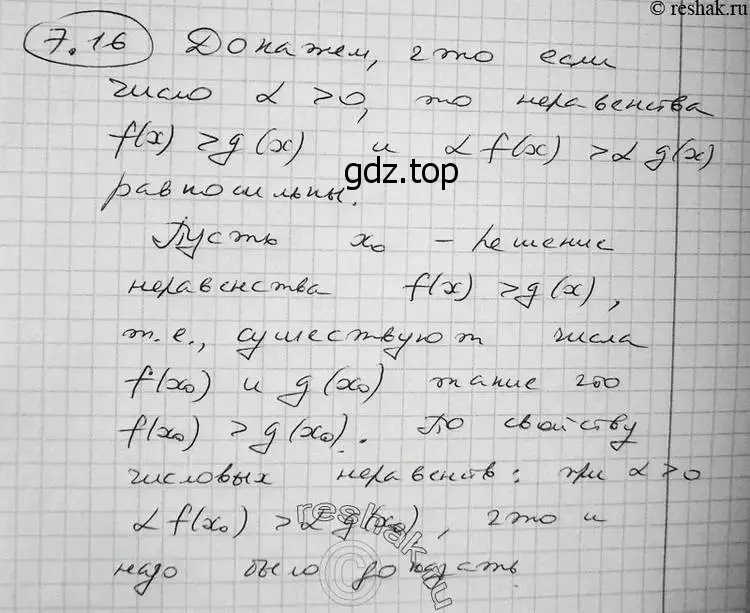 © reshak.ru
7.16 Докажем, что если
число α > 0, то неравенства
f(x) > g(x) и α f(x) > α g(x)
gdz.top
равносильны.
Пусть x₀ – решение
неравенства f(x) > g(x),
т.е., существуют числа
f(x₀) и g(x₀) такие что
f(x₀) > g(x₀). По свойству
числовых неравенств: при α > 0
α f(x₀) > α g(x₀), что и
надо было доказать
reshak.ru
©